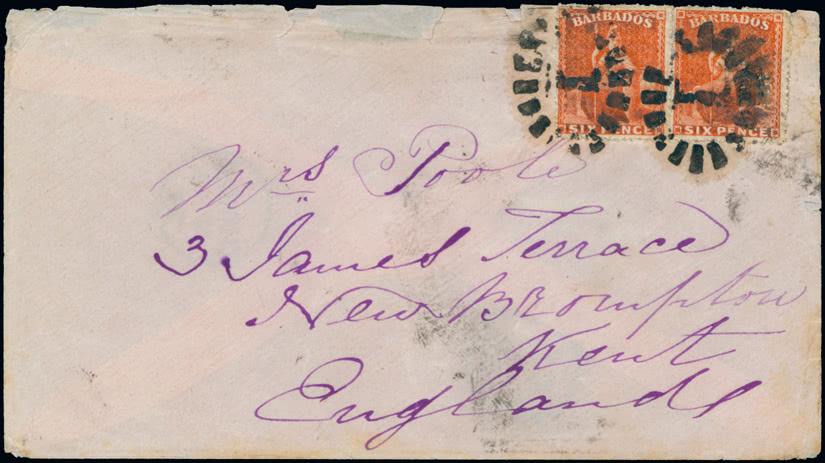 BARBADOS BARBADOS
1 1
SIX PENCE SIX PENCE
Mrs Poole
3 James Terrace
New Brompton
Kent
England